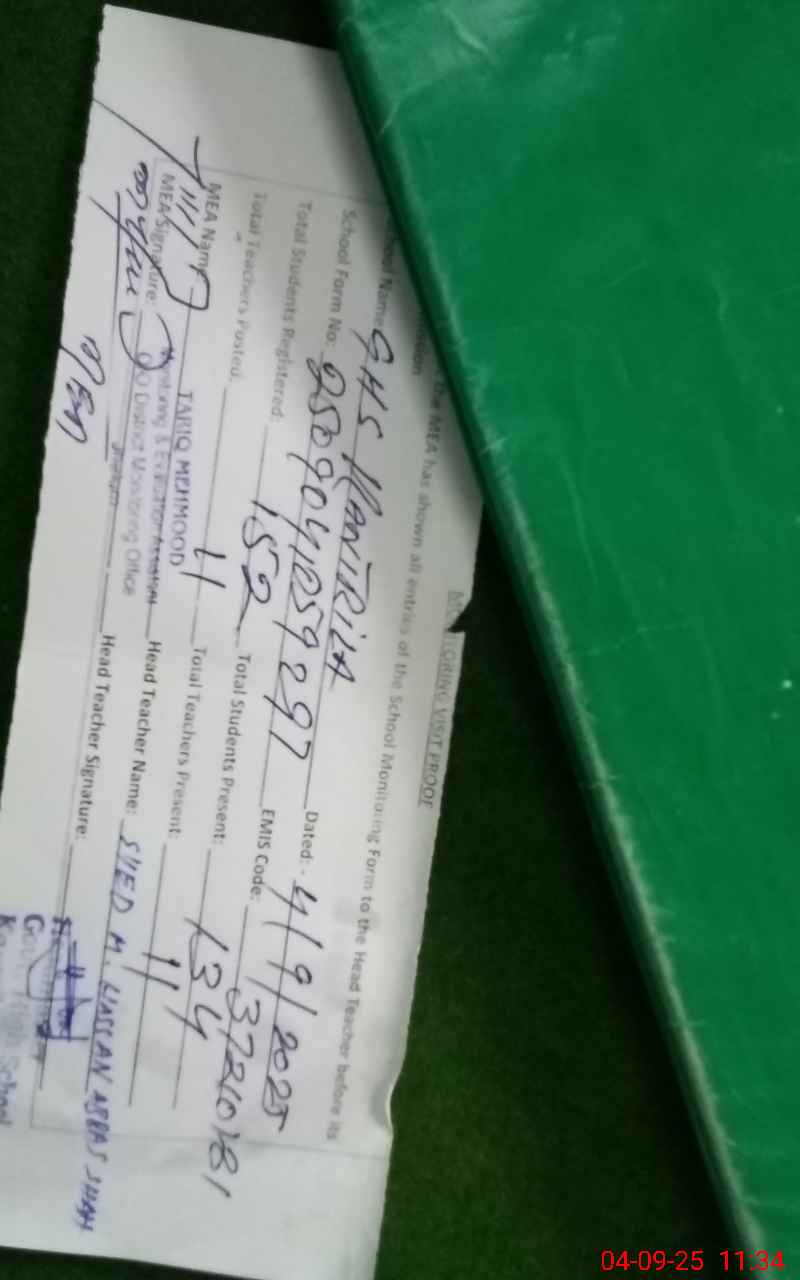 MONITORING VISIT PROOF
the MEA has shown all entries of the School Monitoring Form to the Head Teacher before its
School Name GHS KANTRILA Dated: - 4/9/2025
School Form No: 2509041059297 EMIS Code: 37210181
Total Students Registered: 152 Total Students Present: 134
Total Teachers Posted: 11 Total Teachers Present: 11
MEA Name TARIQ MEHMOOD Head Teacher Name: SYED M. HASSAN ABBAS SHAH
Monitoring & Evaluation Assistant
MEA Signature: District Monitoring Office Head Teacher Signature:
School
04-09-25 11:34